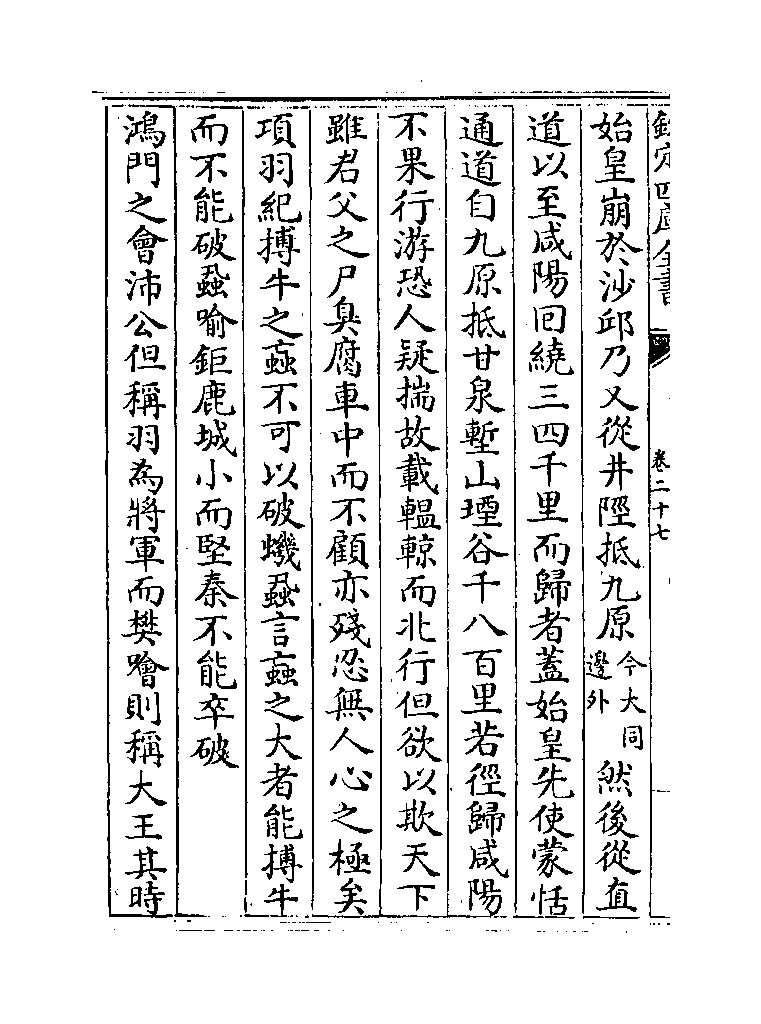 欽定四庫全書
卷二十七
始皇崩於沙邱乃又從井陘抵九原今大同邊外然後從直
道以至咸陽回繞三四千里而歸者蓋始皇先使蒙恬
通道自九原抵甘泉塹山堙谷千八百里若徑歸咸陽
不果行游恐人疑揣故載轀輬而北行但欲以欺天下
雖君父之尸臭腐車中而不顧亦殘忍無人心之極矣
項羽紀搏牛之蝱不可以破蟣蝨言蝱之大者能搏牛
而不能破蝨喻鉅鹿城小而堅秦不能卒破
鴻門之會沛公但稱羽為將軍而樊噲則稱大王其時